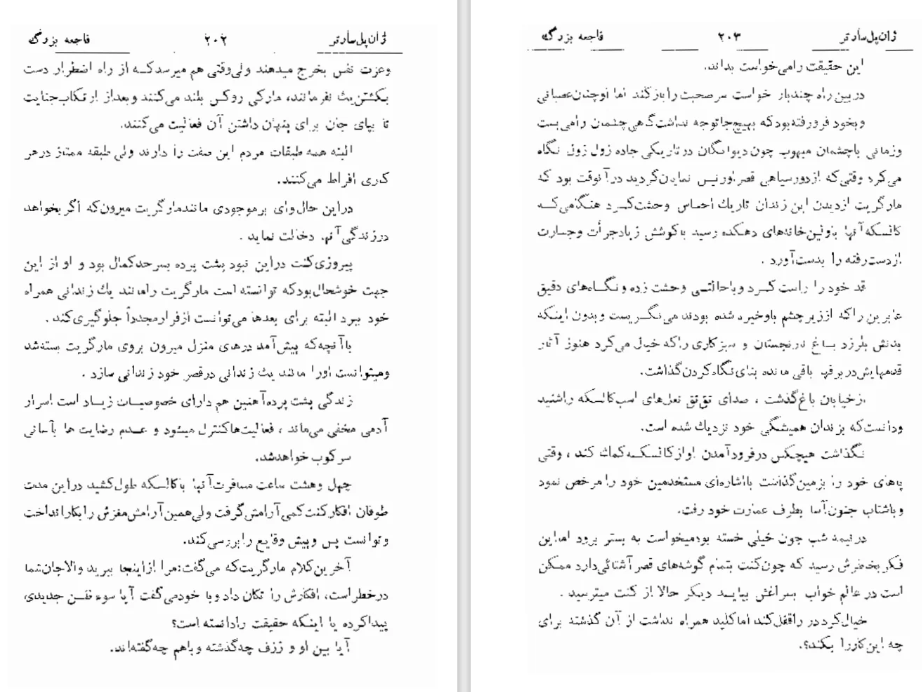 ژان پل سارتر ۲۰۲ فاجعه بزرگ
وعزت نفس بخرج میدهند ولی وقتی هم میرسد که از راه اضطرار دست
بکشتن یك نفر مانند، مارکی روکس بلند می‌کنند و بعد از ارتکاب جنایت
تا پای جان برای پنهان داشتن آن فعالیت می‌کنند.
البته همه طبقات مردم این صفت را دارند ولی طبقه ممتاز در هر
کاری افراط می‌کنند.
در این حال وای بر موجودی مانند مارگریت میرون که اگر بخواهد
در زندگی آنها دخالت نماید .
پیروزی کنت در این نبود پشت پرده بسر حد کمال بود و او از این
جهت خوشحال بود که توانسته است مارگریت را مانند یك زندانی همراه
خود ببرد البته برای بعدها می‌توانست از فرار مجدداً جلوگیری کند .
با آنچه که پیش آمد درهای منزل میرون بروی مارگریت بسته شد
و میتوانست او را مانند یك زندانی در قصر خود زندانی سازد .
زندگی پشت پرده آهنین هم دارای خصوصیات زیاد است اسرار
آدمی مخفی می‌ماند ، فعالیت‌ها کنترل میشود و عدم رضایت ها بآسانی
سرکوب خواهد شد.
چهل و هشت ساعت مسافرت آنها با کالسکه طول کشید در این مدت
طوفان افکار کنت کمی آرامش گرفت ولی همین آرامش مغزش را بکار انداخت
و توانست پس و پیش وقایع را بررسی کند.
آخرین کلام مارگریت که می‌گفت: مرا از اینجا ببرید والا جان شما
در خطر است، افکارش را تکان داد و با خود می‌گفت آیا سوء ظن جدیدی،
پیدا کرده یا اینکه حقیقت را دانسته است؟
آیا بین او و ژزف چه گذشته و باهم چه گفته‌اند.
ژان پل سارتر ۲۰۳ فاجعه بزرگ
این حقیقت را می‌خواست بداند.
در بین راه چندبار خواست سر صحبت را باز کند اما او چنان عصبانی
و بخود فرو رفته بود که بهیچ جا توجه نداشت گاهی چشمان را می‌بست
و زمانی با چشمان مبهوت چون دیوانگان در تاریکی جاده زول زول نگاه
می‌کرد وقتی که از دور سیاهی قصر لورنیس نمایان گردید در آنوقت بود که
مارگریت از دیدن این زندان تاریك احساس وحشت کرد هنگامی‌که
کالسکه آنها باولین خانه‌های دهکده رسید با کوشش زیاد جرأت و جسارت
از دست رفته را بدست آورد .
قد خود را راست کرد و با حالتی وحشت زده و نگاه‌های دقیق
عابرین را که از زیر چشم باو خیره شده بودند می‌نگریست و بدون اینکه
بدنش بلرزد باغ نارنجستان و سبز کاری را که خیال می‌کرد هنوز آثار
قدمهایش در برفها باقی مانده بنای نگاه کردن گذاشت.
از خیابان باغ گذشت ، صدای تق تق نعل‌های اسب کالسکه را شنید
و دانست که بزندان همیشگی خود نزدیك شده است.
نگذاشت هیچکس در فرود آمدن او از کالسکه کمك کند ، وقتی
پاهای خود را بزمین گذاشت با اشاره‌ای مستخدمین خود را مرخص نمود
و با شتاب جنون‌آسا بطرف عمارت خود رفت.
در نیمه شب چون خیلی خسته بود میخواست به بستر برود اما این
فکر بخاطرش رسید که چون کنت بتمام گوشه‌های قصر آشنائی دارد ممکن
است در عالم خواب بسراغش بیاید دیگر حالا از کنت میترسید .
خیال کرد در را قفل کند اما کلید همراه نداشت از آن گذشته برای
چه این کار را بکند؟.